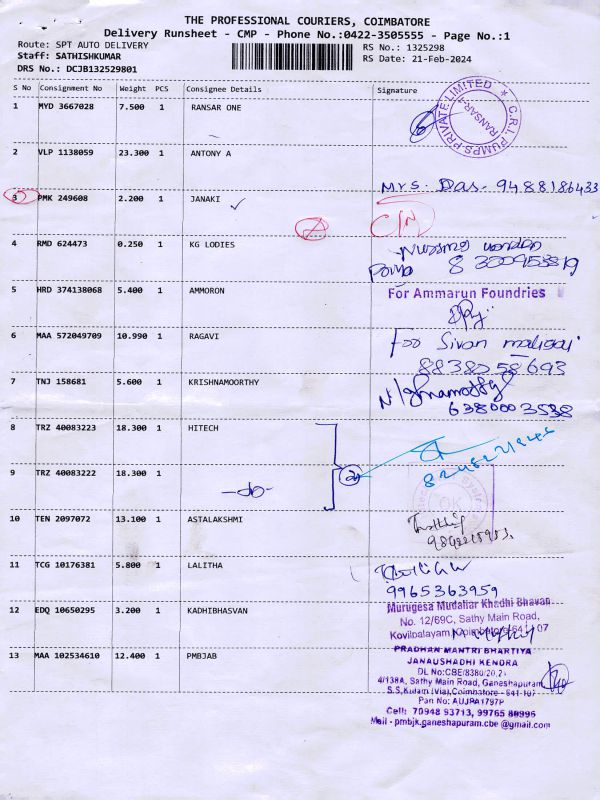 THE PROFESSIONAL COURIERS, COIMBATORE
Delivery Runsheet - CMP - Phone No.:0422-3505555 - Page No.:1
Route: SPT AUTO DELIVERY
RS No.: 1325298
Staff: SATHISHKUMAR
RS Date: 21-Feb-2024
DRS No.: DCJB132529801
S No Consignment No Weight PCS Consignee Details Signature
1 MYD 3667028 7.500 1 RANSAR ONE
C.R.I. PUMPS PRIVATE LIMITED
RANSAR-1
2 VLP 1138059 23.300 1 ANTONY A
Mrs. Das. 9488186433
3 PMK 249608 2.200 1 JANAKI
C/N
4 RMD 624473 0.250 1 KG LODIES
5 HRD 374138068 5.400 1 AMMORON
For Ammarun Foundries
6 MAA 572049709 10.990 1 RAGAVI
For Sivan maligai
8838058693
7 TNJ 158681 5.600 1 KRISHNAMOORTHY
6380003538
8 TRZ 40083223 18.300 1 HITECH
9 TRZ 40083222 18.300 1
-do-
2
10 TEN 2097072 13.100 1 ASTALAKSHMI
11 TCG 10176381 5.800 1 LALITHA
9965363959
12 EDQ 10650295 3.200 1 KADHIBHASVAN
Murugesa Mudaliar Khadhi Bhavan
No. 12/69C, Sathy Main Road,
Kovilpalayam, Coimbatore-641 107
13 MAA 102534610 12.400 1 PMBJAB
PRADHAN MANTRI BHARTIYA
JANAUSHADHI KENDRA
DL No:CBE/8380/20,21
4/138A, Sathy Main Road, Ganeshapuram,
S.S.Kulam (Via), Coimbatore - 641-107
Pan No: AUJPA1797P
Cell: 70948 93713, 99765 80996
Mail - pmbjk.ganeshapuram.cbe@gmail.com